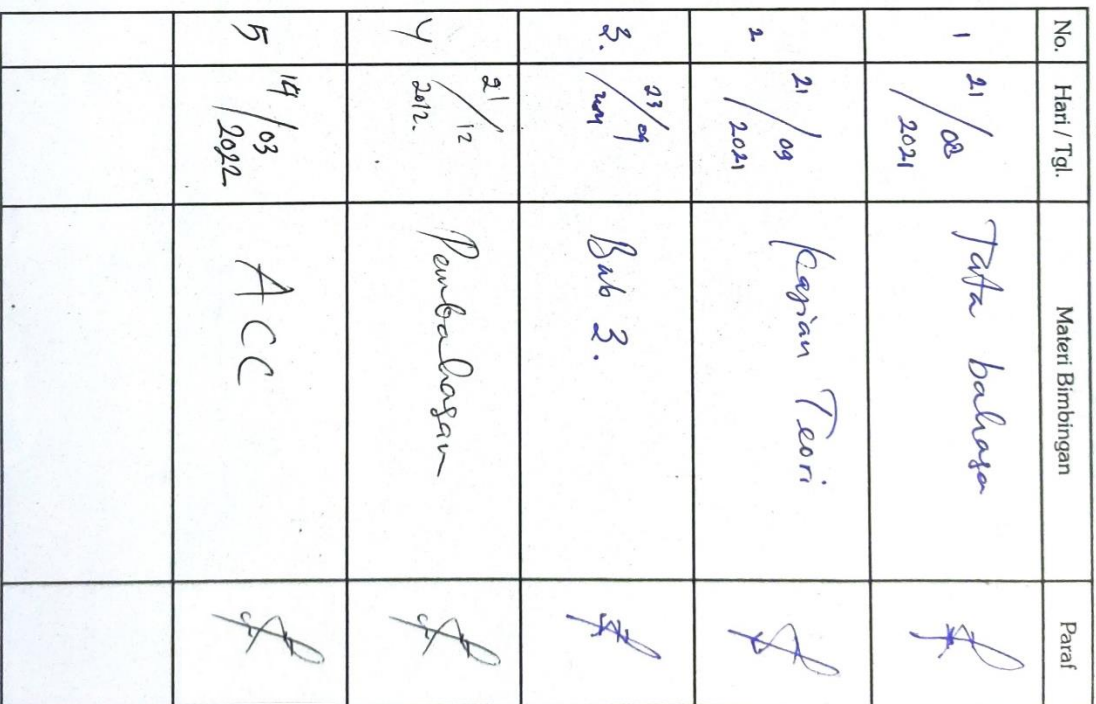 No. Hari / Tgl. Materi Bimbingan Paraf
1 21/08 2021 Tata bahasa
2 21/09 2021 Kajian Teori
3. 23/09 Bab 3.
4 21/12 2012. Pembahasan
5 14/03 2022 ACC